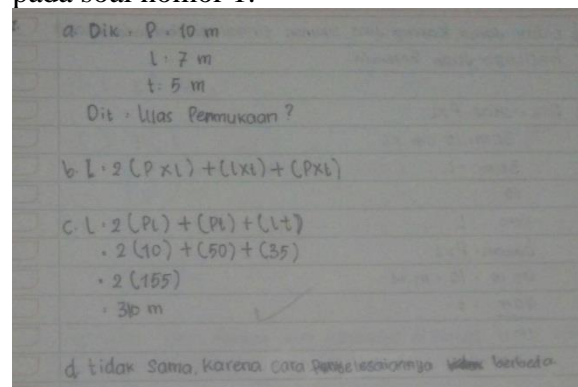 pada soal nomor 1.
a. Dik : P : 10 m
l : 7 m
t : 5 m
Dit : Luas Permukaan ?
b. L : 2 (P x l) + (l x t) + (P x t)
c. L : 2 (Pl) + (Pt) + (Lt)
: 2 (70) + (50) + (35)
: 2 (155)
: 310 m
d. tidak sama, karena cara Penyelesaiannya berbeda